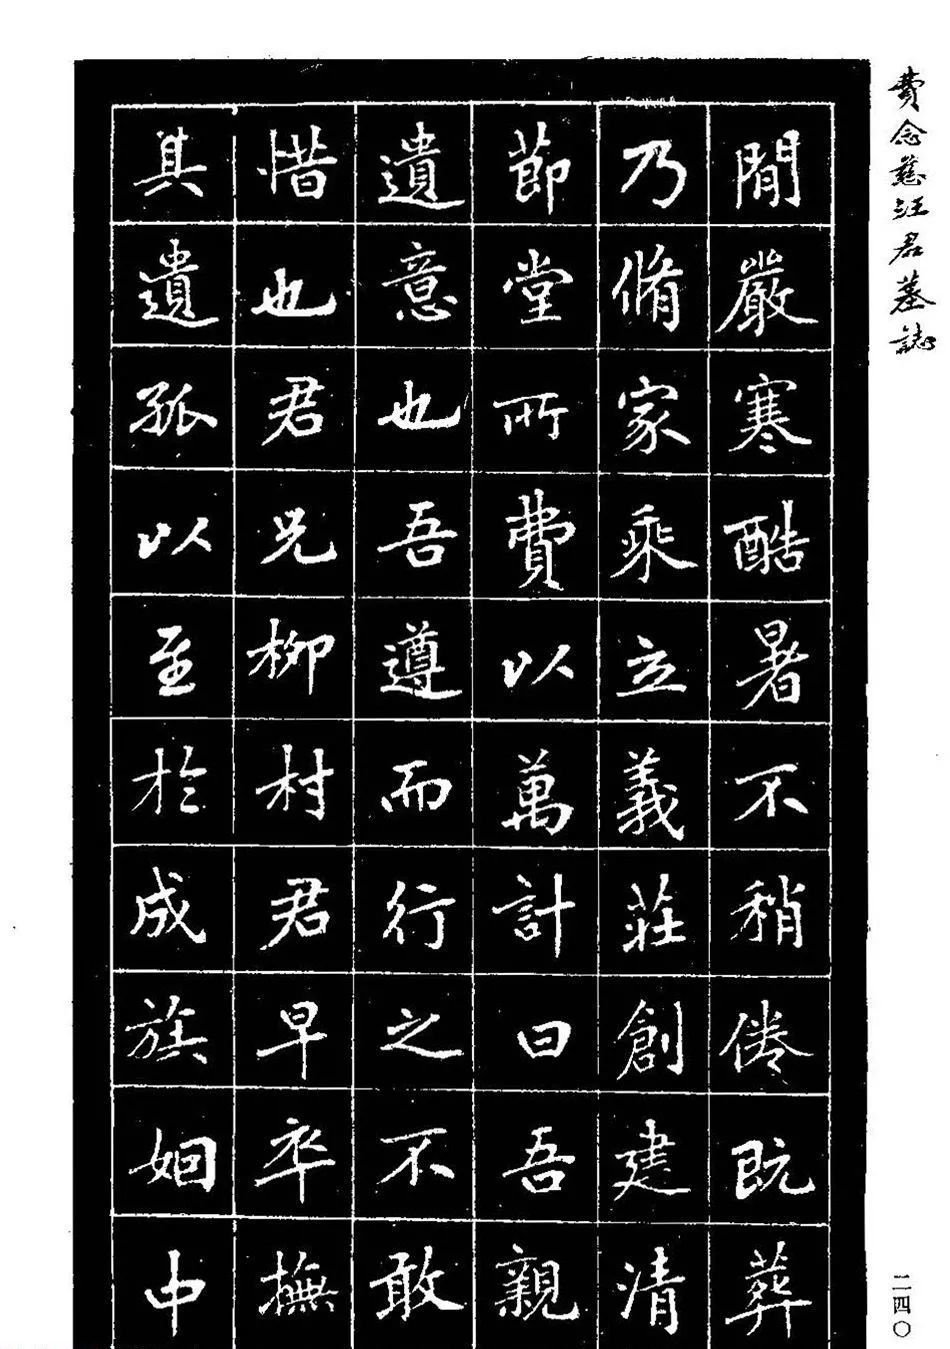 費念慈汪君墓誌
間嚴寒酷暑不稍倦既葬
乃脩家乘立義莊創建清
節堂所費以萬計曰吾親
遺意也吾遵而行之不敢
惜也君兄柳村君早卒撫
其遺孤以至於成族姻中
二四〇